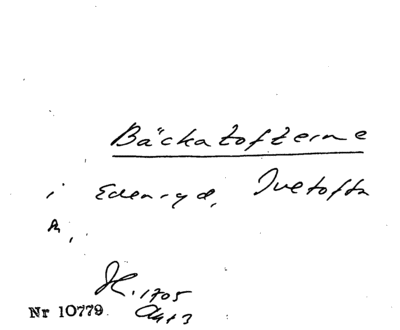 Bäckatofterne
i Edenryd, Ivetofta
h,
H. 1705
Nr 10779.